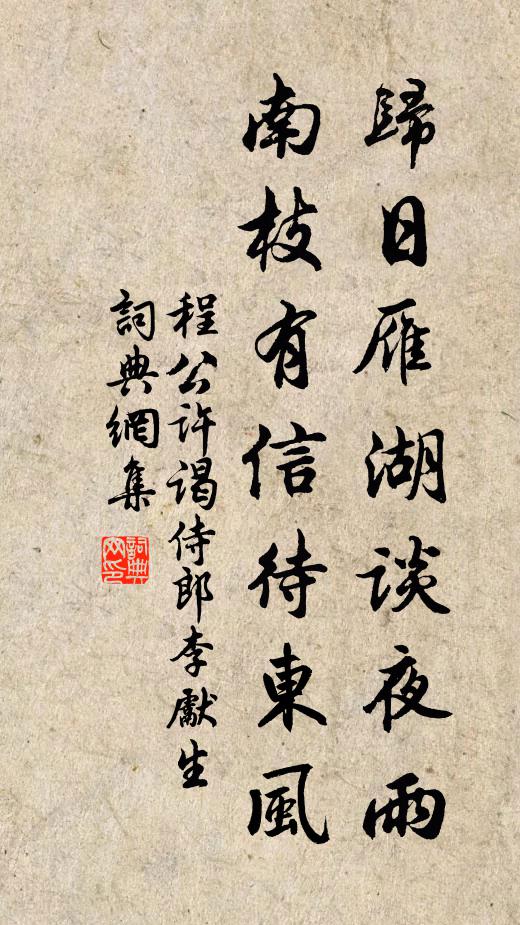 歸日雁湖談夜雨
南枝有信待東風
程公許謁侍郎李獻生
詞典網集
詞典網印